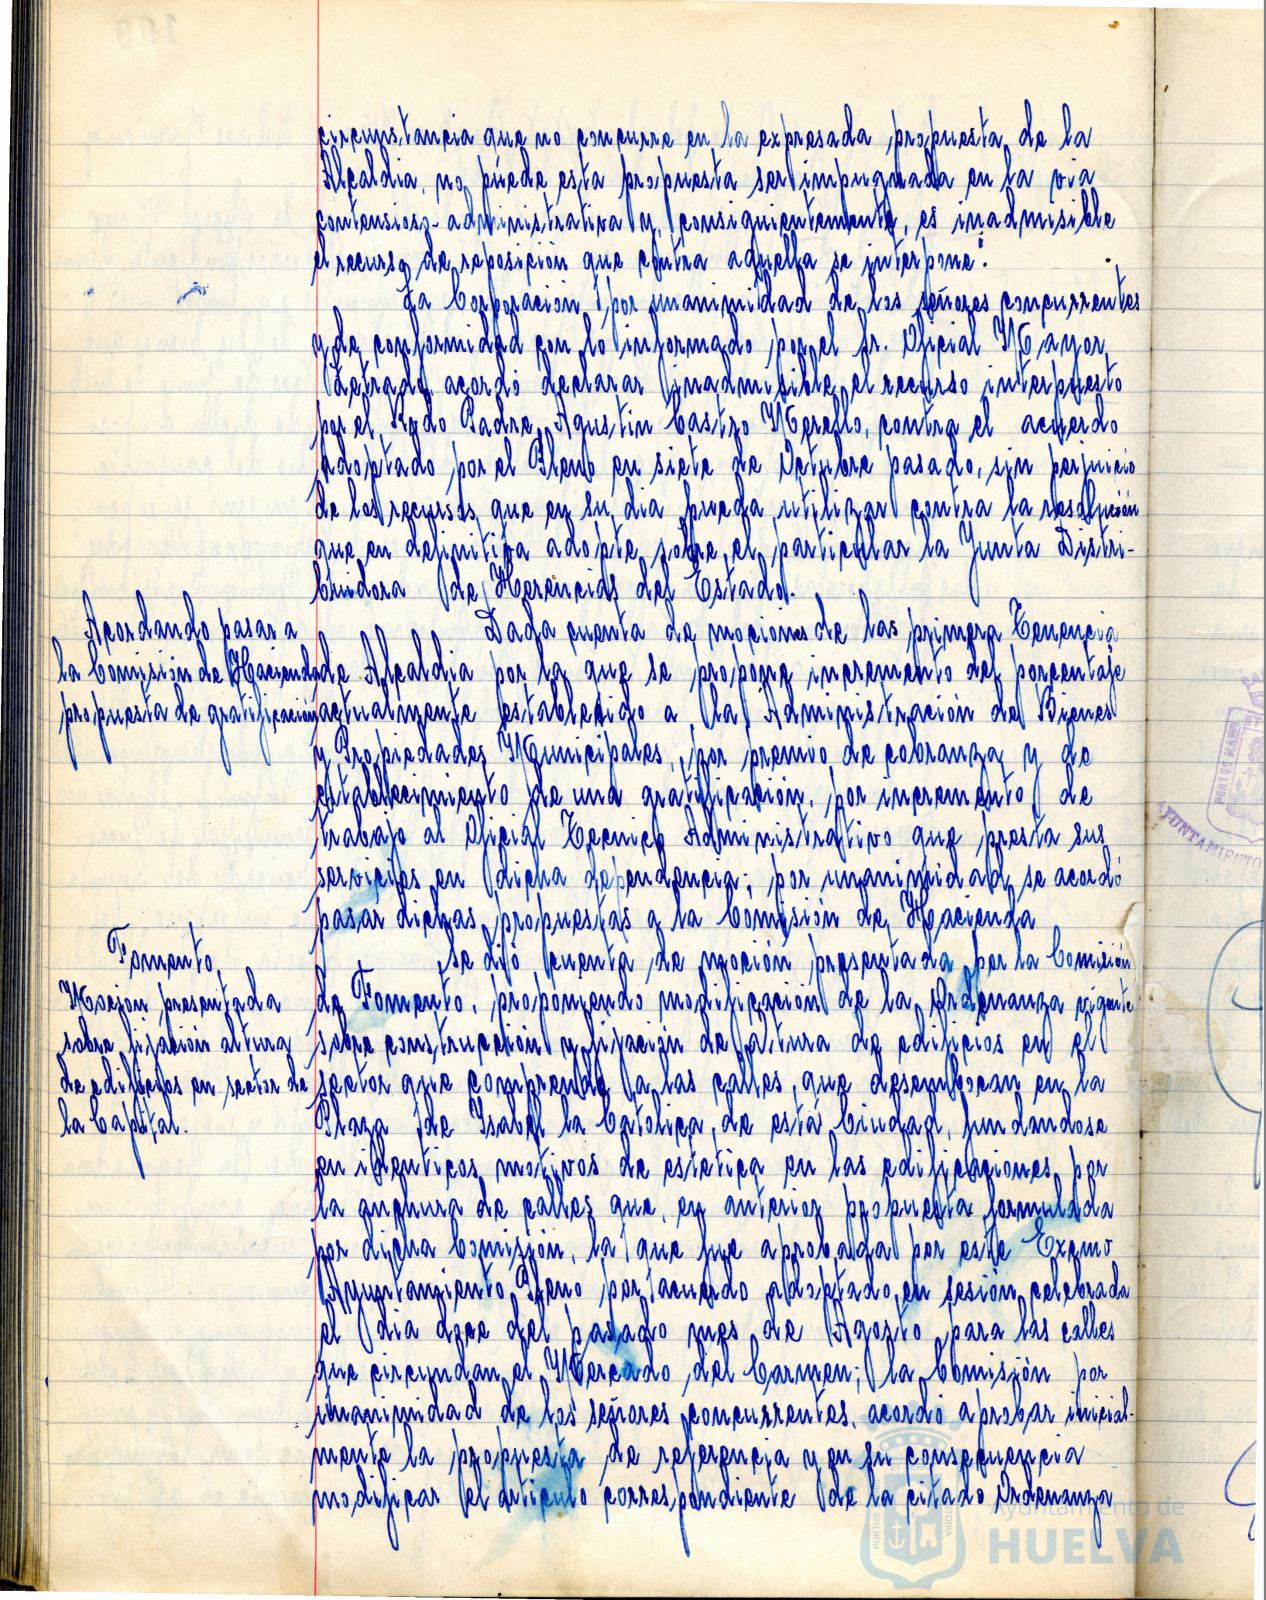 circunstancia que no concurre en la expresada propuesta de la
Alcaldia, no puede esta propuesta ser impugnada en la via
contencioso-administrativa y, consiguientemente, es inadmisible
el recurso de reposición que contra aquella se interpone".
La Corporación, por unanimidad de los señores concurrentes
y de conformidad con lo informado por el Sr. Oficial Mayor
Letrado, acordó declarar inadmisible el recurso interpuesto
por el Rvdo Padre Agustin Castro Merello, contra el acuerdo
adoptado por el Pleno en siete de Octubre pasado, sin perjuicio
de los recursos que en su dia pueda utilizar contra la resolución
que en definitiva adopte sobre el particular la Junta Distri-
buidora de Herencias del Estado.
Acordando pasar a
la Comisión de Hacienda
propuesta de gratificación
Dada cuenta de mociones de las primera Tenencia
de Alcaldia por la que se propone incremento del porcentaje
actualmente establecido a la Administración de Bienes
y Propiedades Municipales, por premio de cobranza y de
establecimiento de una gratificación, por incremento de
trabajo al Oficial Tecnico Administrativo que presta sus
servicios en dicha dependencia; por unanimidad se acordó
pasar dichas propuestas a la Comisión de Hacienda
Fomento,
Moción presentada
sobre fijación altura
de edificios en sector de
la Capital.
Se dió cuenta de moción presentada por la Comisión
de Fomento, proponiendo modificación de la Ordenanza vigente
sobre construcción y fijación de altura de edificios en el
sector que comprende a las calles que desembocan en la
Plaza de Isabel la Catolica, de esta Ciudad, fundandose
en identicos motivos de estetica en las edificaciones por
la anchura de calles que, en anterior propuesta formulada
por dicha Comisión, la que fue aprobada por este Excmo
Ayuntamiento Pleno por acuerdo adoptado en sesión celebrada
el dia doce del pasado mes de Agosto para las calles
que circundan el Mercado del Carmen; la Comisión por
unanimidad de los señores concurrentes, acordó aprobar inicial-
mente la propuesta de referencia y en su consecuencia
modificar el articulo correspondiente de la citado Ordenanza
Ayuntamiento de
HUELVA